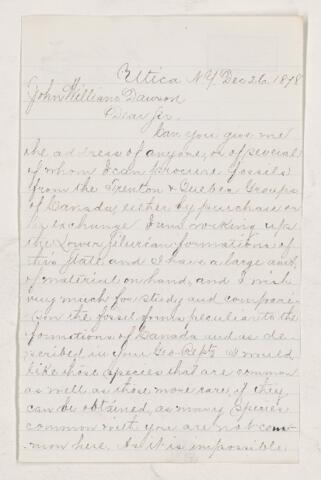 Utica NY Dec 26. 1878
John William Dawson
Dear Sir.
Can you give me
the address of anyone, or of several
of whom I can procure fossils
from the Trenton & Quebec Groups
of Canada, either by purchase or
by exchange I am working up
the Lower Silurian formations of
this State and I have a large amt.
of material on hand, and I wish
very much for study and compari-
son the fossil forms peculiar to the
formations of Canada and as de-
scribed in your Geo. Repts I would
like those species that are common
as well as those more rare, if they
can be obtained, as many species
common with you are not com-
mon here. As it is impossible